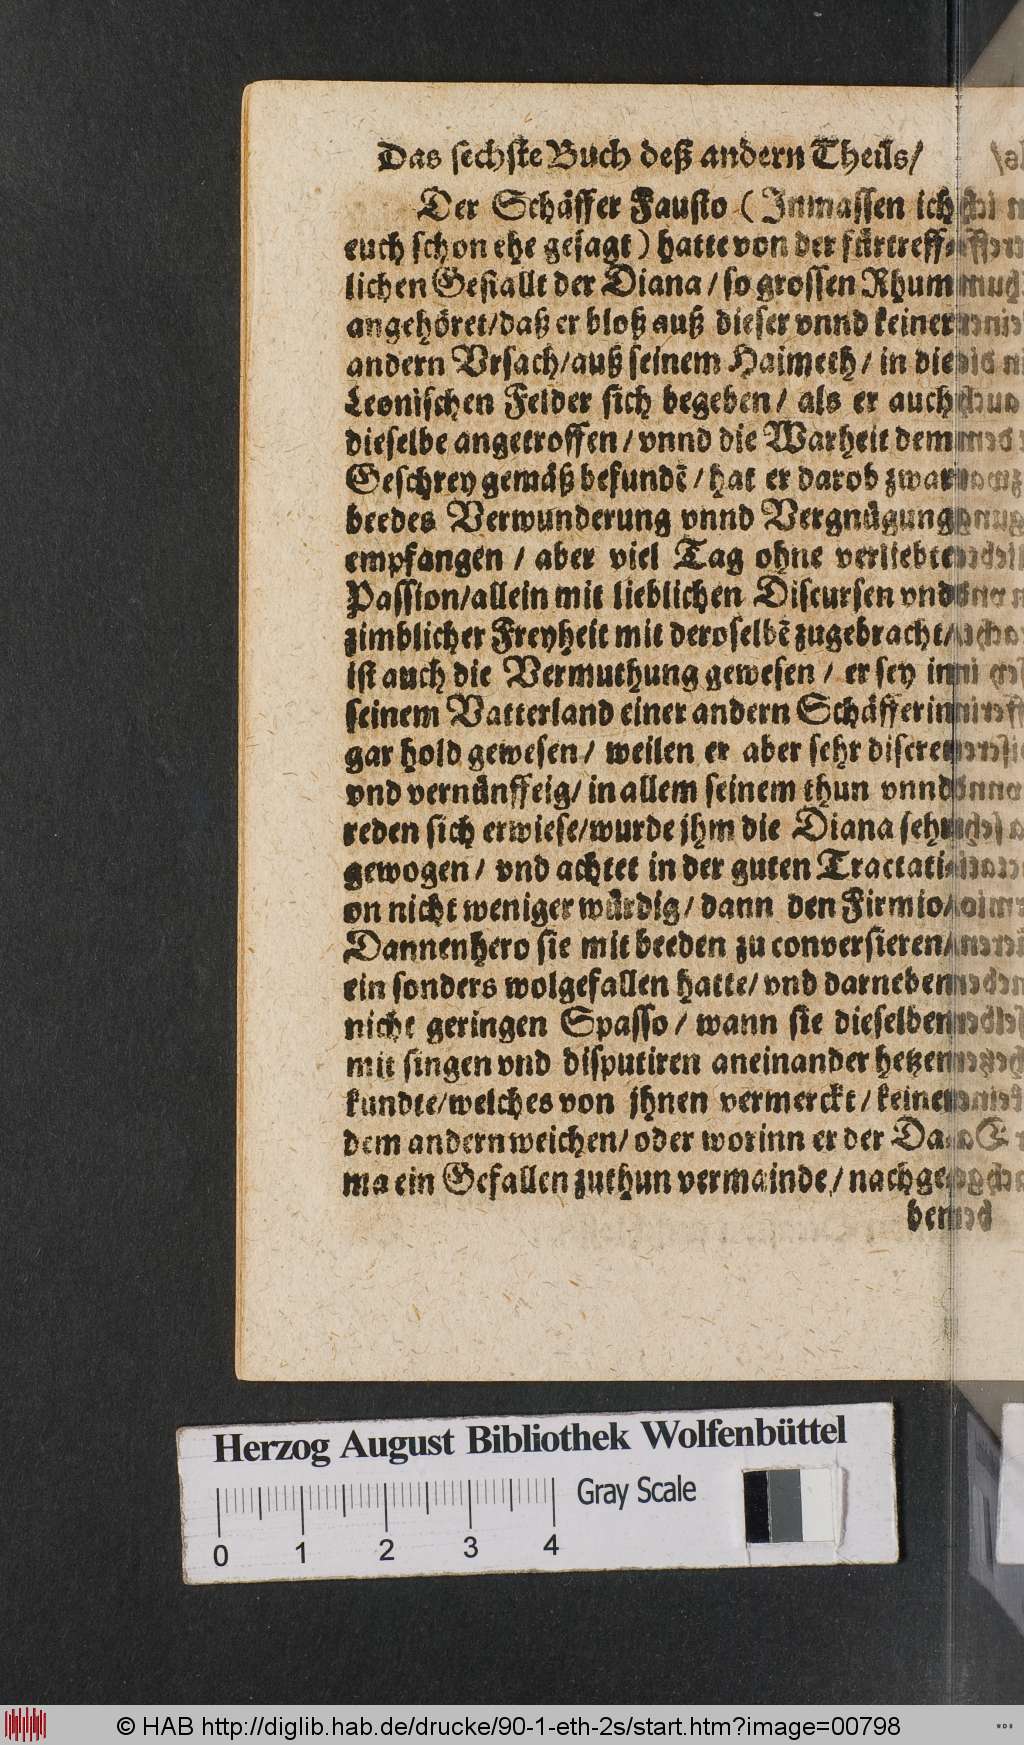 Das sechste Buch deß andern Theils/
Der Schäffer Fausto (Inmassen ich
euch schon ehe gesagt) hatte von der fürtreff-
lichen Gestallt der Diana/ so grossen Rhum
angehöret/ daß er bloß auß dieser vnnd keiner
andern Vrsach/ auß seinem Haimeth/ in die
Leonischen Felder sich begeben/ als er auch
dieselbe angetroffen/ vnnd die Warheit dem
Geschrey gemäß befundē/ hat er darob zwar
beedes Verwunderung vnnd Vergnügung
empfangen/ aber viel Tag ohne verliebte
Passion/ allein mit lieblichen Discursen vnd
zimblicher Freyheit mit deroselbē zugebracht/
ist auch die Vermuthung gewesen/ er sey in
seinem Vatterland einer andern Schäfferin
gar hold gewesen/ weilen er aber sehr discret
vnd vernünfftig/ in allem seinem thun vnnd
reden sich erwiese/ wurde jhm die Diana sehr
gewogen/ vnd achtet in der guten Tractati-
on nicht weniger würdig/ dann den Firmio/
Dannenhero sie mit beeden zu conversieren/
ein sonders wolgefallen hatte/ vnd darneben
nicht geringen Spasso/ wann sie dieselben
mit singen vnd disputiren aneinander hetzen
kundte/ welches von jhnen vermerckt/ keiner
dem andern weichen/ oder worinn er der Da-
ma ein Gefallen zuthun vermainde/ nachge-
bend
Herzog August Bibliothek Wolfenbüttel
Gray Scale
0 1 2 3 4
© HAB http://diglib.hab.de/drucke/90-1-eth-2s/start.htm?image=00798